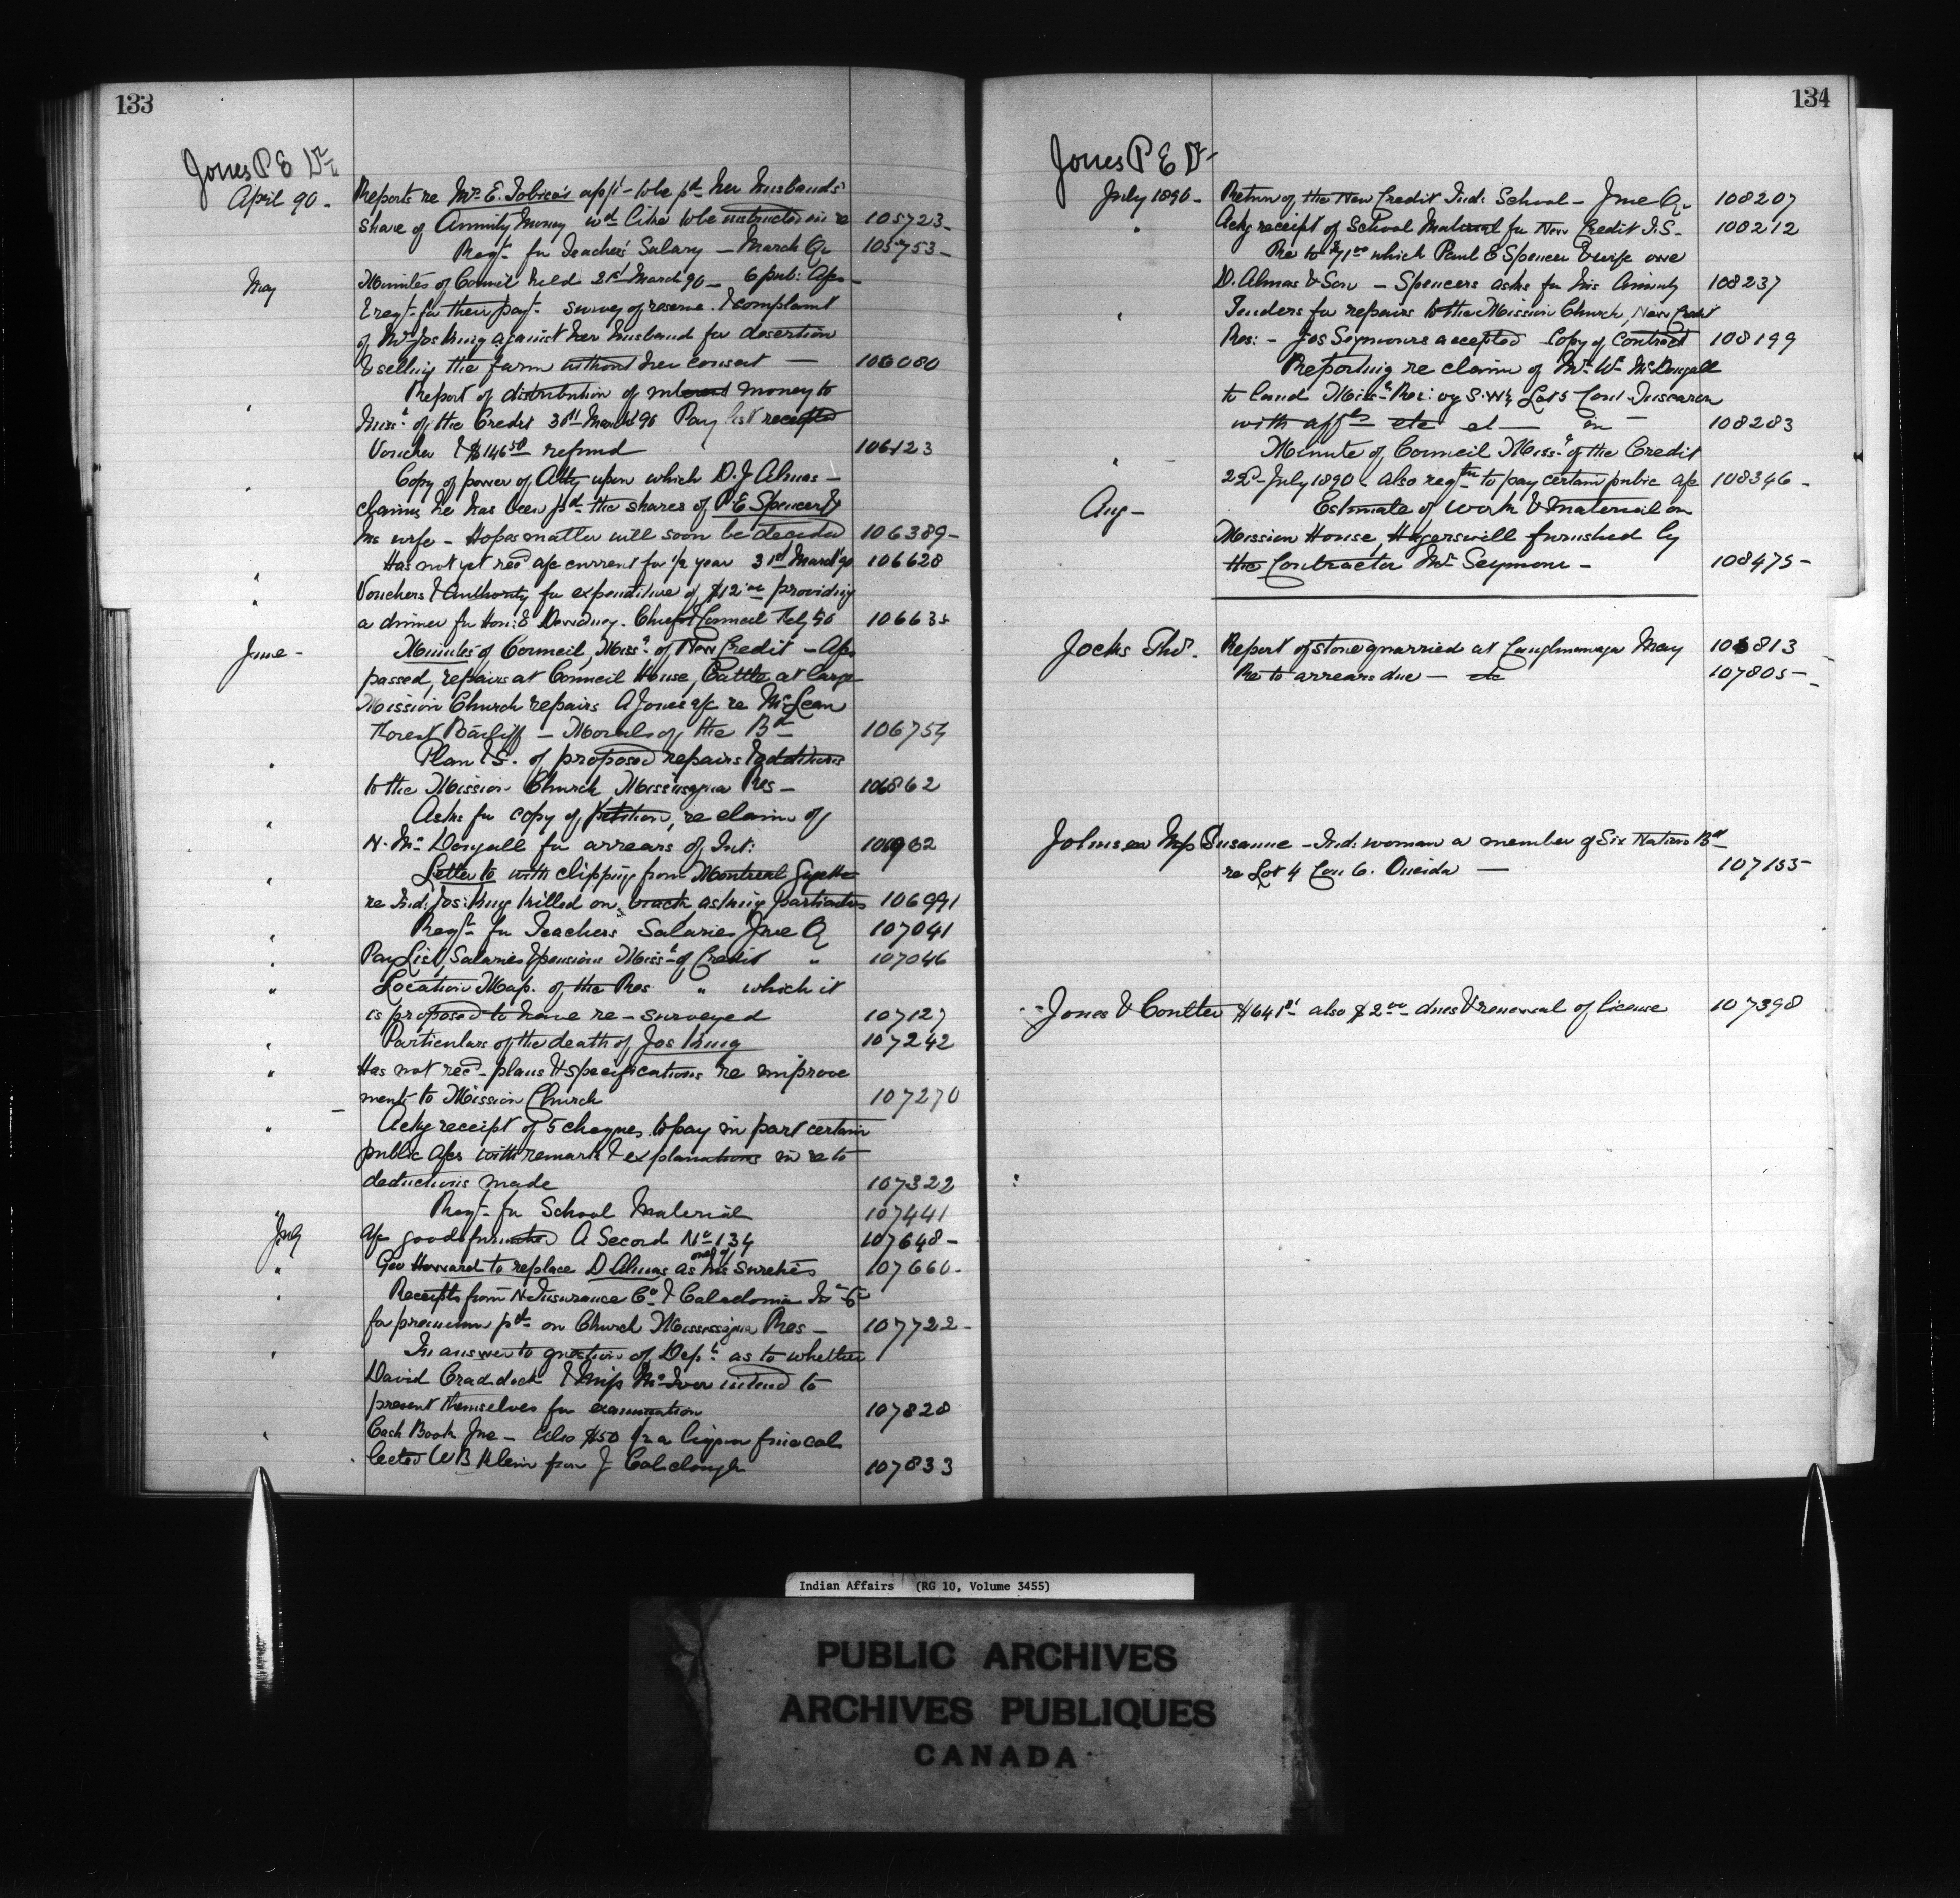 133
Jones P E Dr
April 90 - Reports re Mrs E. Tobico's appl - to be pd her husband's
share of Annuity Money wd like to be instructed in re 105723 -
Reqt for Teachers' Salary - March Qr 105753 -
May Minutes of Council held 31st March 90 - 6 pub: a/cs -
& reqt for their payt survey of reserve. & complaint
of Mrs Jos King against her husband for desertion
& selling the farm without her consent - 106080
" Report of distribution of interest money to
Miss: of the Credit 31st March 90 Pay list receipted
Voucher & $146 50 refund 106123
" Copy of power of Atty upon which D. J. Almas -
claims he has been pd the shares of P E Spencer &
his wife - Hopes matter will soon be decided 106389 -
" Has not yet recd a/c current for 1/2 year 31st March 90 106628
" Vouchers & Authority for expenditure of $12 00 providing
a dinner for Hon: E Dewdney. Chief & Council Feby 90 10663
June - Minutes of Council, Miss: of New Credit - A/cs
passed, repairs at Council House, Cattle at large
Mission Church repairs A Jones a/c re McLean
Forest Bailiff - Morals of the Bd 106754
" Plan & S. of proposed repairs & additions
to the Mission Church Mississagua Res - 106862
" Asks for copy of petition, re claim of
N. McDougall for arrears of Int: 106962
" Letter to with clipping from Montreal Gazette
re Ind: Jos: King killed on track asking particulars 106991
" Reqt for Teachers Salaries Jne Q 107041
" Pay List, Salaries & pensions Miss: of Credit " 107046
" Location Map. of the Res " which it
is proposed to have re-surveyed 107127
" Particulars of the death of Jos King 107242
" Has not recd plans & specifications re improve
ments to Mission Church 107270
" Ackg receipt of 5 cheques to pay in part certain
public a/cs with remarks & explanations in re to
deductions made 107322
" Reqt for School Material 107441
July A/c goods furnished A Second No 134 107648 -
one of
" Geo Howard to replace D Almas as his sureties 107660 -
" Receipts from N. Insurance Co & Caledonia Ins Co
for premium pd on Church Mississagua Res - 107722 -
" In answer to question of Dept as to whether
David Craddock & Miss McIver intend to
present themselves for examination 107828
" Cash Book Jne - Also $50 for a liquor fine col
lected W B Klein from J Colclough 107833
134
Jones P E Dr
July 1890 - Return of the New Credit Ind: School - Jne Q. 108207
" Ackg receipt of School Material for New Credit I.S. 108212
Re to $71 00 which Paul E Spencer & wife owe
D. Almas & Son - Spencer asks for his Annuity 108237
" Tenders for repairs to the Mission Church, New Credit
Res: - Jos Seymours accepted Copy of Contract 108199
Reporting re claim of Mr Wm McDougall
to land Miss: Res: S. W 1/2 Lot 5 Con 1 Tuscarora
with affts etc 108283
" Minute of Council Miss: of the Credit
22d July 1890 - also reqts to pay certain public a/cs 108346 -
Aug - Estimate of work & material on
Mission House, Hagersvill furnished by
the Contractor Mr Seymour - 108475 -
Jocks Thos. Report of stone quarried at Caughnawaga May 106813
Re to arrears due - etc 107805 -
Johnson Mrs Susanne - Ind: woman a member of Six Nation Bd
re Lot 4 Con 6. Oneida - 107155
Jones & Coulter $641 also $2 00 dues & renewal of license 107398
Indian Affairs (RG 10, Volume 3455)
PUBLIC ARCHIVES
ARCHIVES PUBLIQUES
CANADA